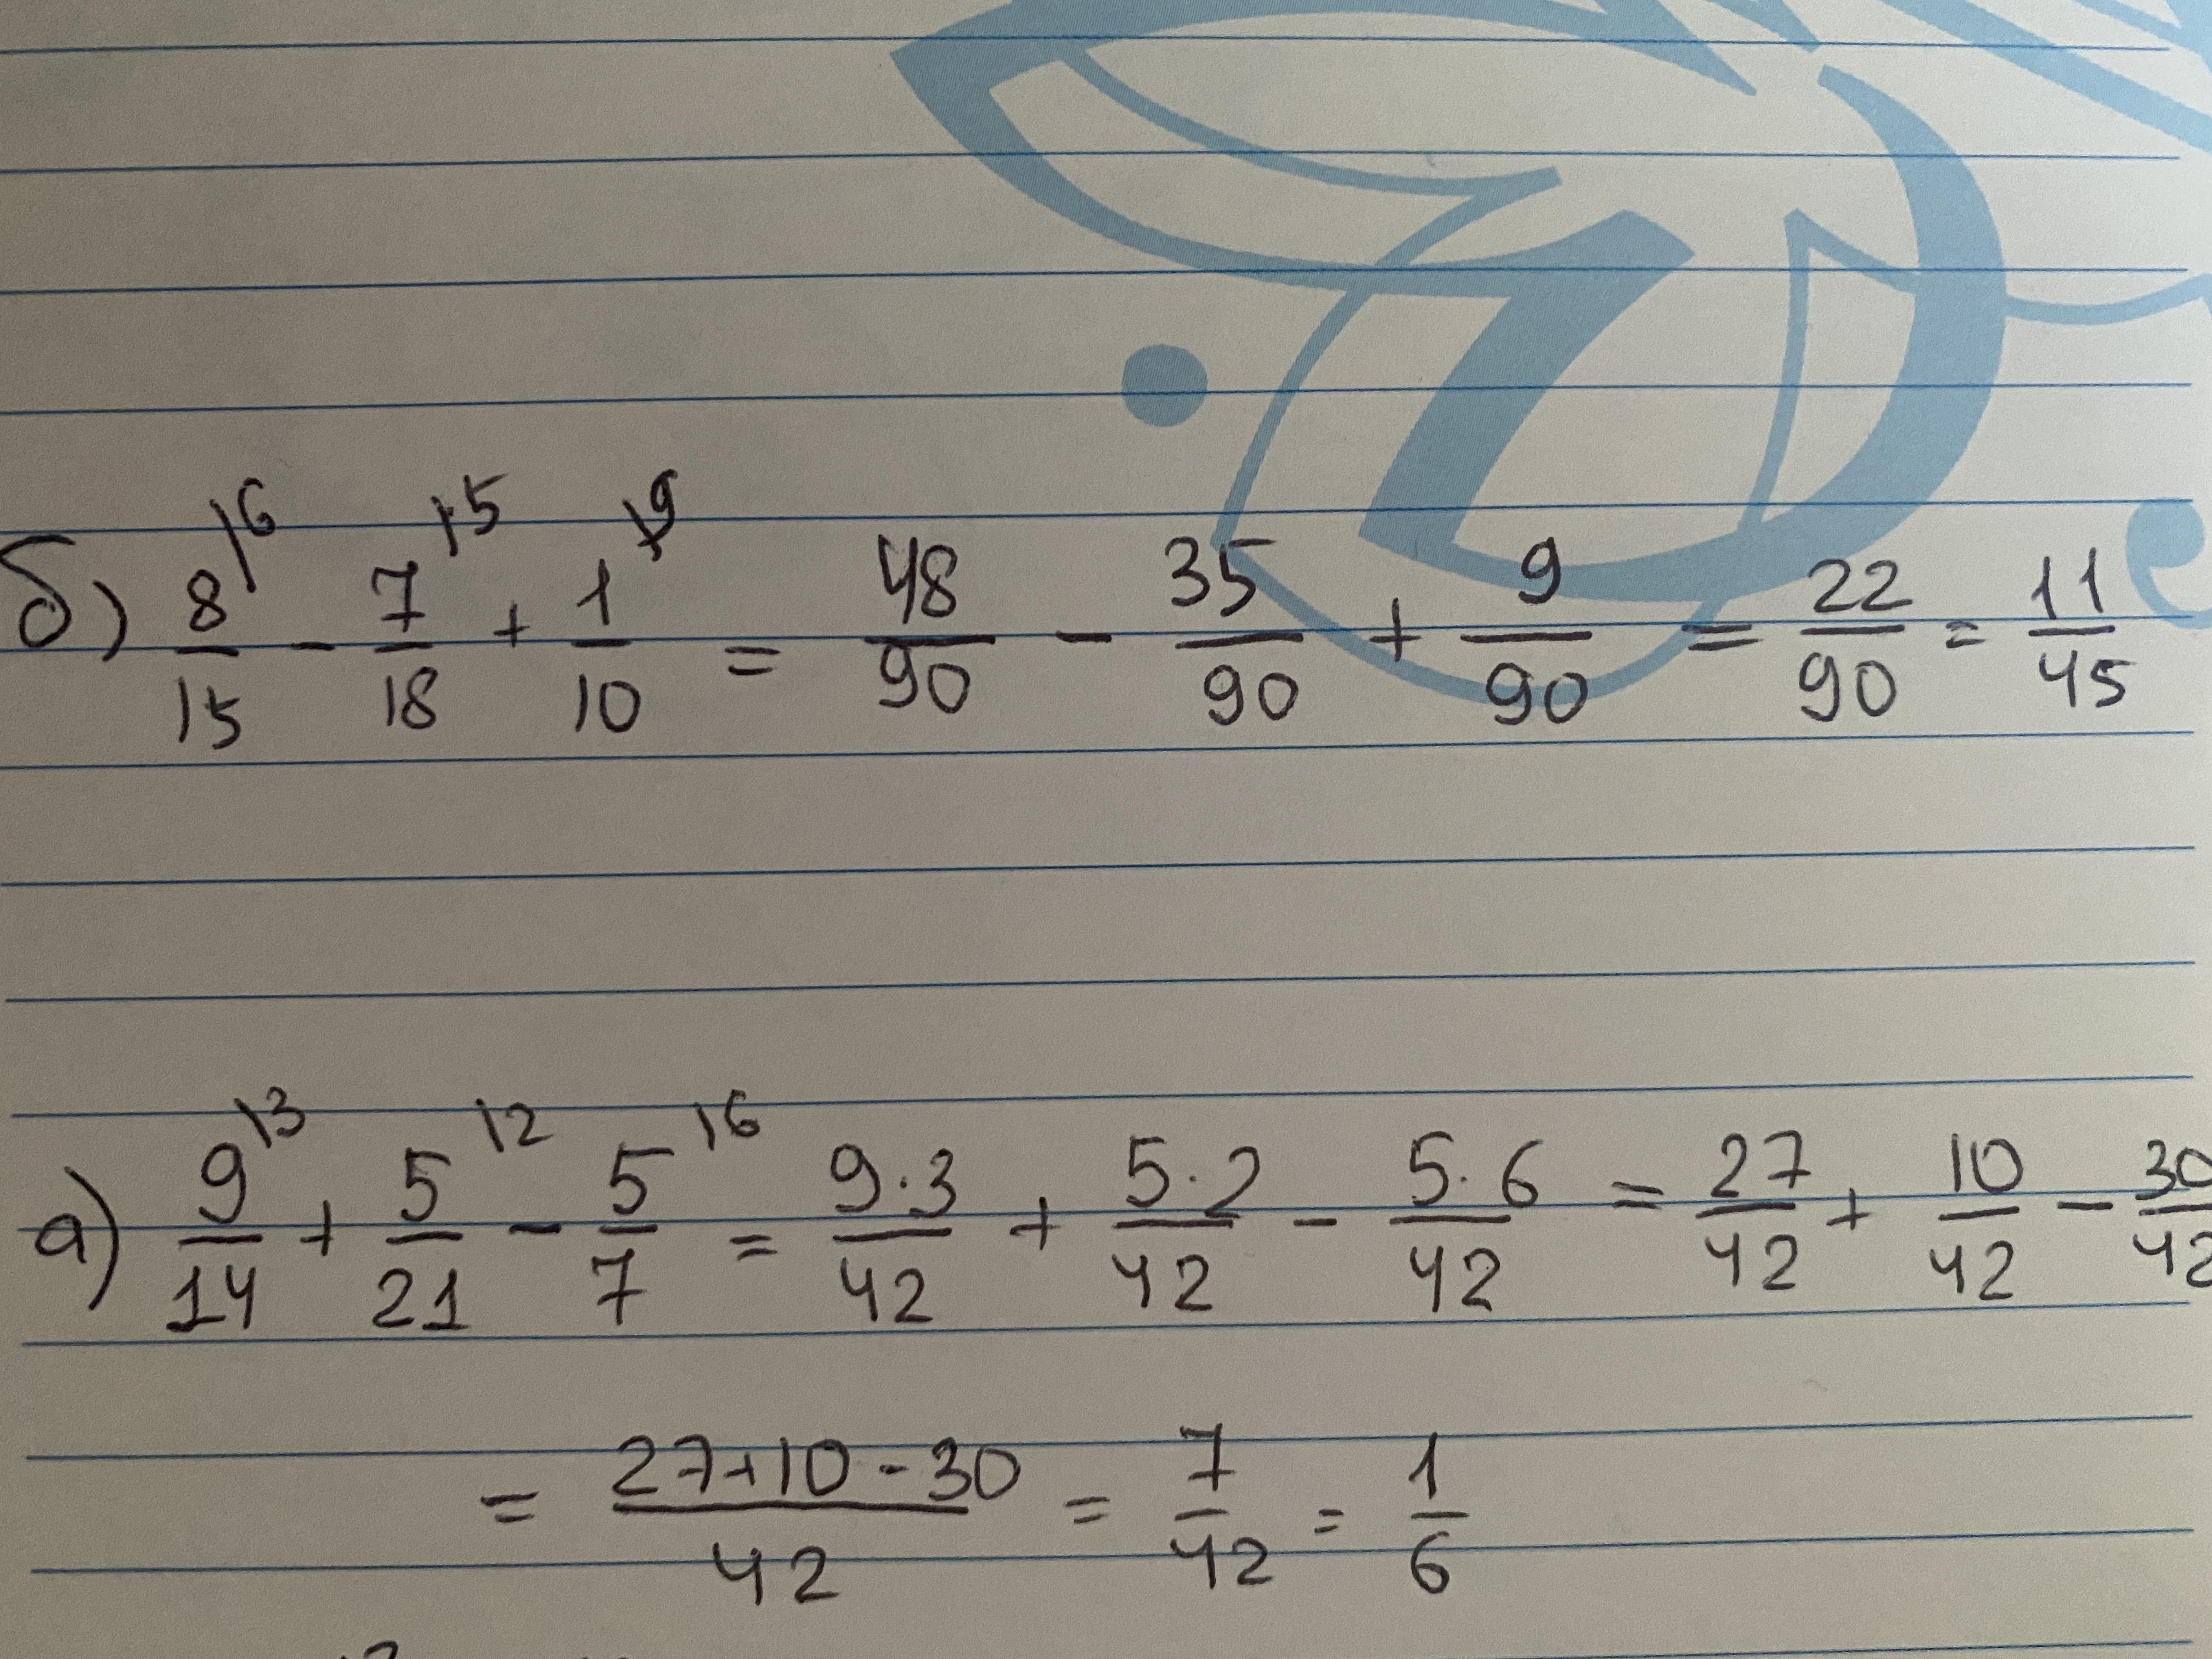 б) 8/15 \6 - 7/18 \5 + 1/10 \9 = 48/90 - 35/90 + 9/90 = 22/90 = 11/45
а) 9/14 \3 + 5/21 \2 - 5/7 \6 = 9·3/42 + 5·2/42 - 5·6/42 = 27/42 + 10/42 - 30/42
= 27+10-30/42 = 7/42 = 1/6